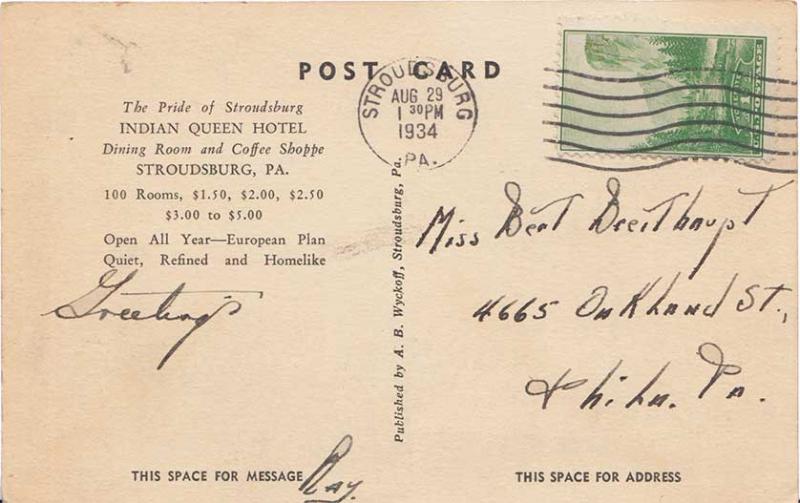 POST CARD
STROUDSBURG
AUG 29
1 30 PM
1934
PA.
The Pride of Stroudsburg
INDIAN QUEEN HOTEL
Dining Room and Coffee Shoppe
STROUDSBURG, PA.
100 Rooms, $1.50, $2.00, $2.50
$3.00 to $5.00
Open All Year—European Plan
Quiet, Refined and Homelike
Greetings
Ray.
THIS SPACE FOR MESSAGE
Published by A. B. Wyckoff, Stroudsburg, Pa.
Miss Bert Breithaupt
4665 Oakland St.,
Phila. Pa.
THIS SPACE FOR ADDRESS